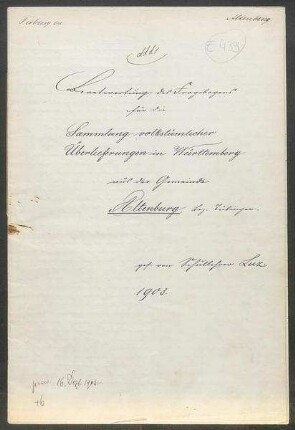 Altenburg
Beantwortung des Fragebogens
für die
Sammlung volkstümlicher
Überlieferungen in Württemberg
aus der Gemeinde
Altenburg, bez. Tübingen
gef. von Schullehrer Lutz
1903.
16. Dez. 1903